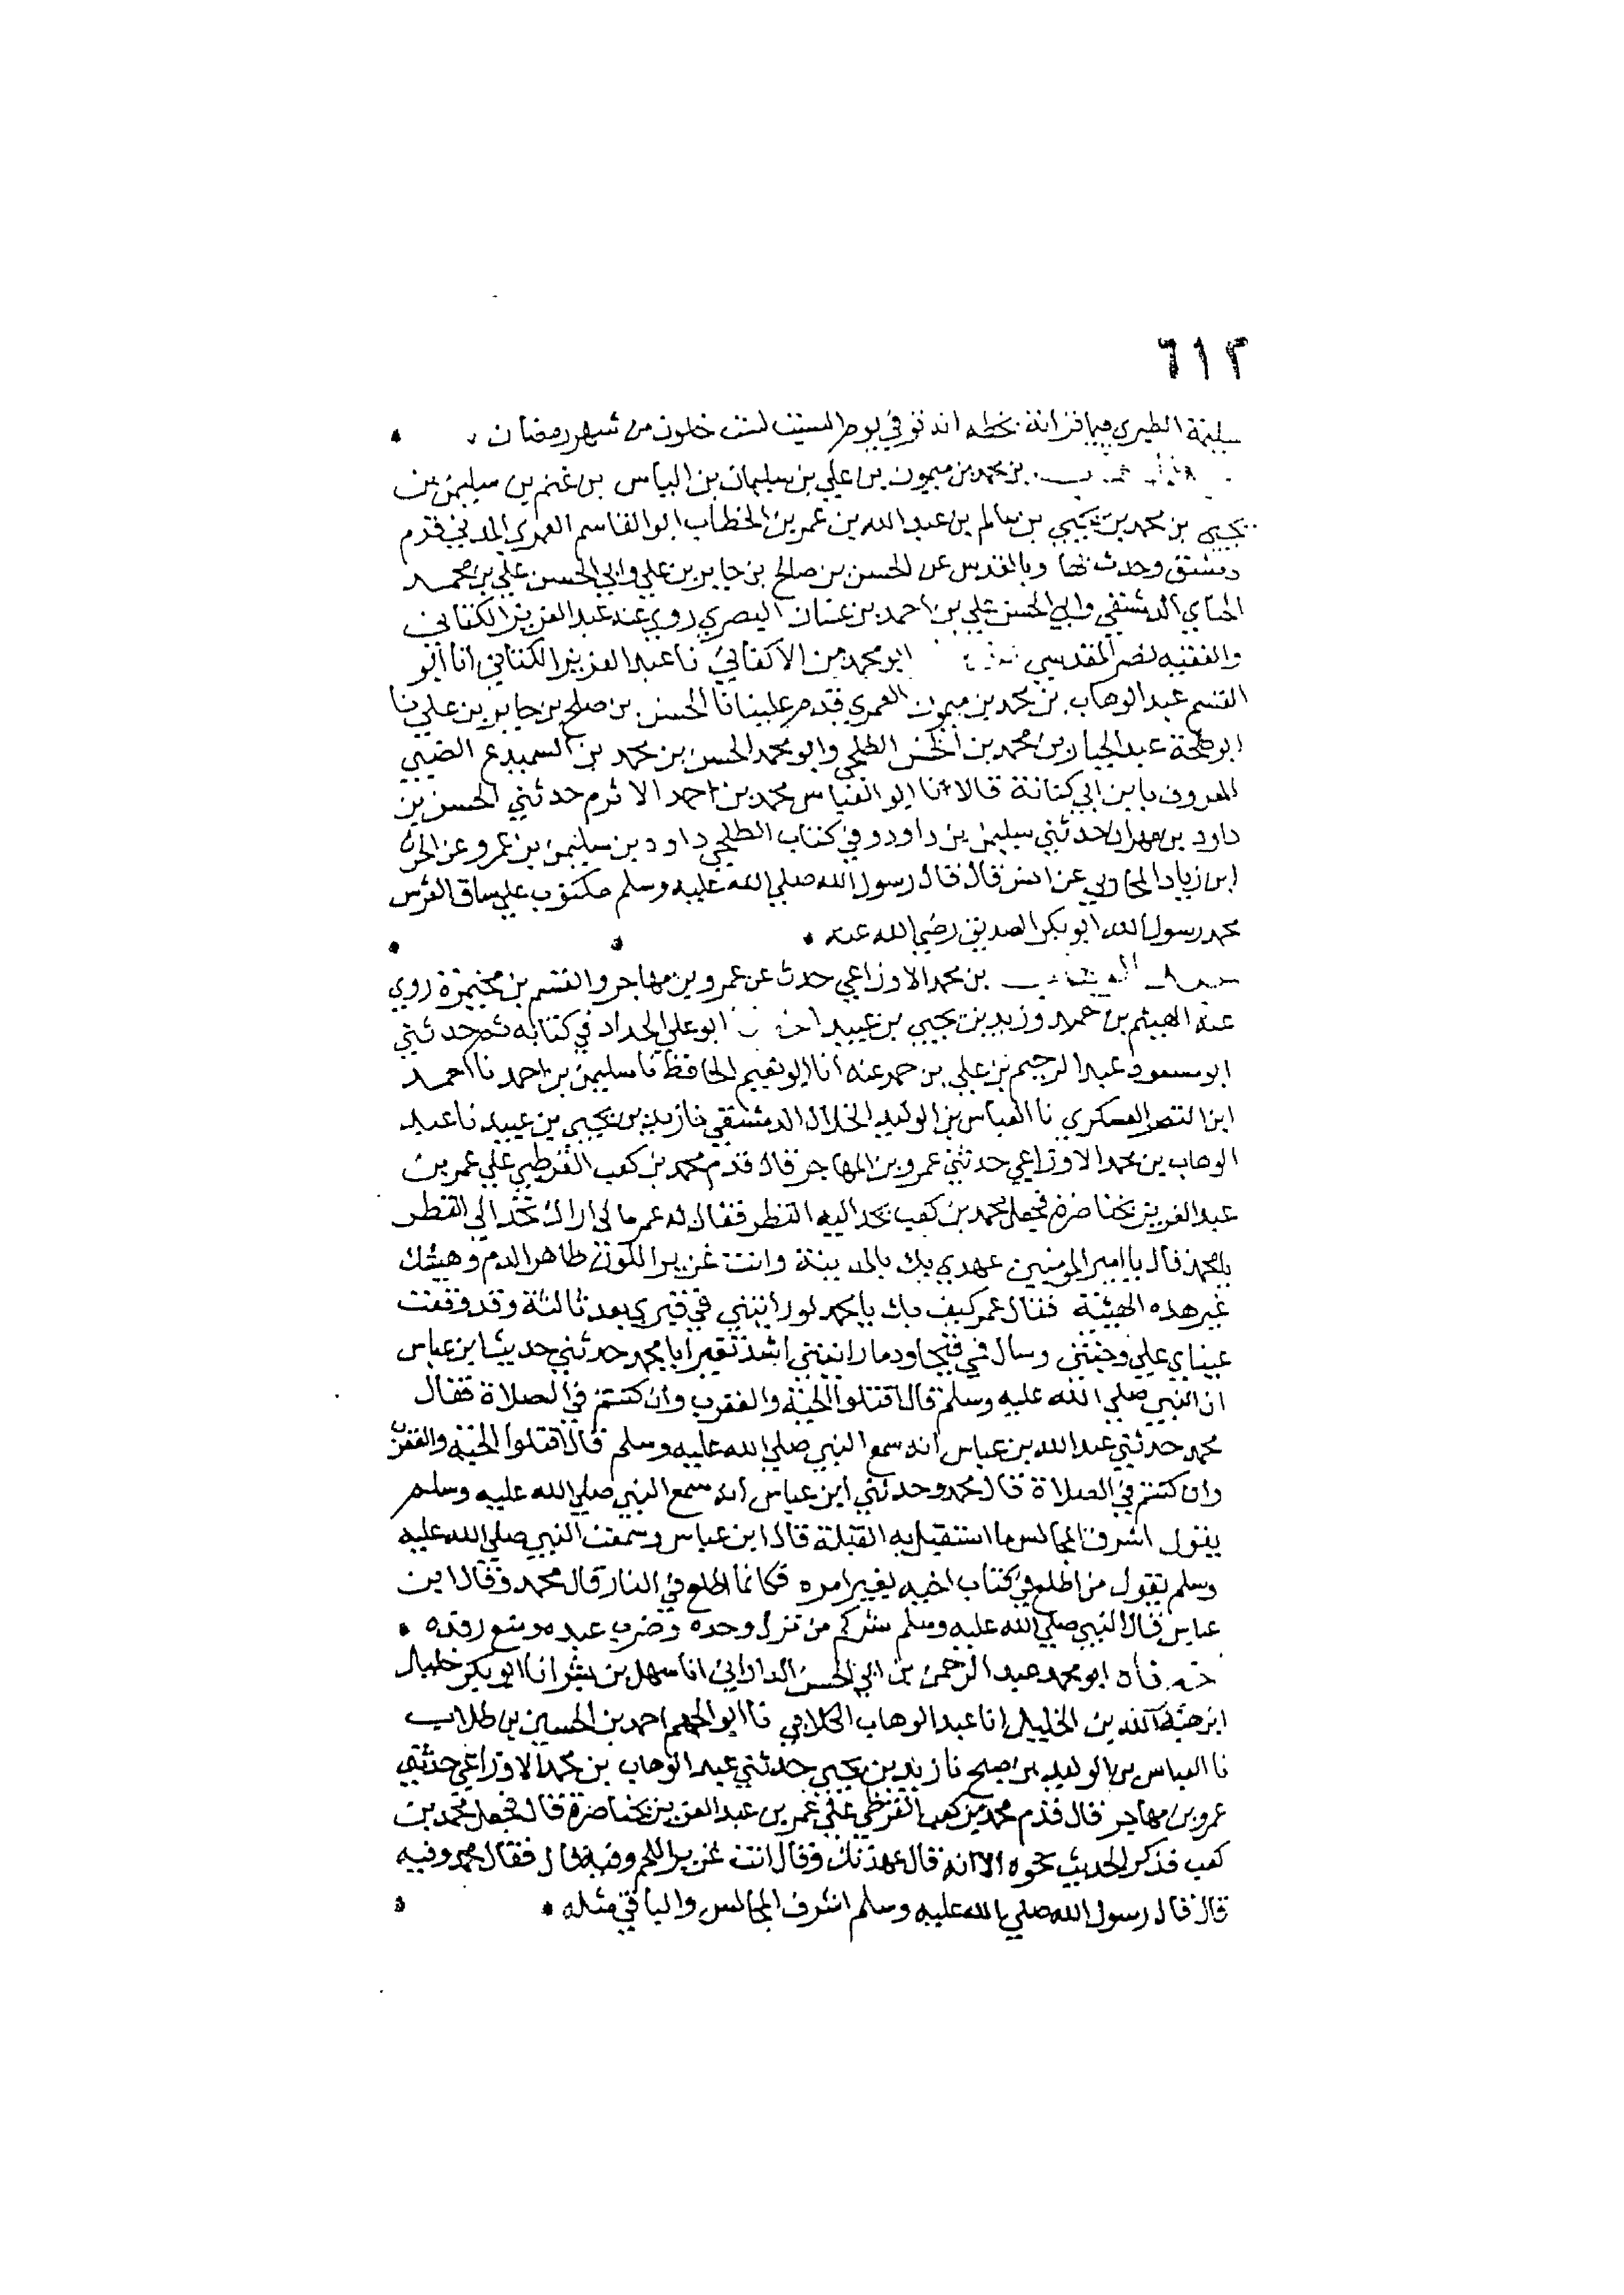 ٦١٢
سليمة الطبري فيما قرانة بخطه انه توفي يوم السبت لست خلون من شهر رمضان
بن محمد بن ميمون بن علي بن سليمان بن الياس بن غنم بن سليمن بن
يحيى بن محمد بن يحيي بن سالم بن عبد الله بن عمر بن الخطاب ابو القاسم العمري المدني قدم
دمشق وحدث بها وبالقدس عن الحسن بن صالح بن جابر بن علي وابي الحسن علي بن محمد
الدمشقي وابي الحسن علي بن احمد بن غسان البصري روي عنه عبد العزيز الكتاني
والفقيه نصر المقدسي ابو محمد بن الاكفاني نا عبد العزيز الكتاني انا ابو
القسم عبد الوهاب بن محمد بن ميمون العمري قدم علينا نا الحسن بن صلح بن جابر بن علي نا
ابو طلحة عبد الجبار بن محمد بن الحسن الطلحي وابو محمد الحسن بن محمد بن السميدع الضبي
المعروف بابن ابي كنانة قالا انا ابو العباس محمد بن احمد الاثرم حدثني الحسن بن
داود بن مهران حدثني سليمن بن داود وفي كتاب الطلحي داود بن سليمن بن عمرو عن الحرث
ابن زياد المحاربي عن انس قال قال رسول الله صلي الله عليه وسلم مكتوب علي ساق العرش
محمد رسول الله ابو بكر الصديق رضي الله عنه
عبد الوهاب بن محمد الاوزاعي حدث عن عمرو بن مهاجر والقسم بن مخيمرة روي
عنه الهيثم بن حميد وزيد بن يحيي بن عبيد ابو علي الحداد في كتابه ثم حدثني
ابو مسعود عبد الرحيم بن علي بن حمد عنه انا ابو نعيم الحافظ نا سليمن بن احمد نا احمد
ابن النضر العسكري نا العباس بن الوليد الخلال الدمشقي نا زيد بن يحيي بن عبيد نا عبد
الوهاب بن محمد الاوزاعي حدثني عمرو بن المهاجر قال قدم محمد بن كعب القرظي علي عمر بن
عبد العزيز بخناصرة فجعل محمد بن كعب يحد اليه النظر فقال له عمر ما لي اراك تحد الي النظر
يا محمد قال يا امير المومنين عهدي بك بالمدينة وانت غزير اللون ظاهر الدم وهيئتك
غير هذه الهيئة فقال عمر كيف بك يا محمد لو رايتني في قبري بعد ثالثة وقد وقعت
عيناي علي وجنتي وسال في قيحا ودما رايتني اشد تغيرا يا محمد حدثني حديث ابن عباس
ان النبي صلي الله عليه وسلم قال اقتلوا الحية والعقرب وان كنتم في الصلاة فقال
محمد حدثني عبد الله بن عباس انه سمع النبي صلي الله عليه وسلم قال اقتلوا الحية والعقرب
وان كنتم في الصلاة قال محمد وحدثني ابن عباس انه سمع النبي صلي الله عليه وسلم
يقول اشرف المجالس ما استقبل به القبلة قال ابن عباس وسمعت النبي صلي الله عليه
وسلم يقول من اطلع في كتاب اخيه بغير امره فكانما اطلع في النار قال محمد وقال ابن
عباس قال النبي صلي الله عليه وسلم شركم من نزل وحده وضرب عبده ومنع رفده
ابو محمد عبد الرحمن بن ابي الحسن الداراني انا سهل بن بشر انا ابو بكر خليل
ابن هبة الله بن الخليل انا عبد الوهاب الكلابي نا ابو الجهم احمد بن الحسين بن طلاب
نا العباس بن الوليد بن صبح نا زيد بن يحيي حدثني عبد الوهاب بن محمد الاوزاعي حدثني
عمرو بن مهاجر قال قدم محمد بن كعب القرظي علي عمر بن عبد العزيز بخناصرة قال فجعل محمد بن
كعب فذكر الحديث نحوه الا انه قال عهدتك وقال انت غزير اللحم وفيه قال فقال محمد وفيه
قال قال رسول الله صلي الله عليه وسلم اشرف المجالس والباقي مثله